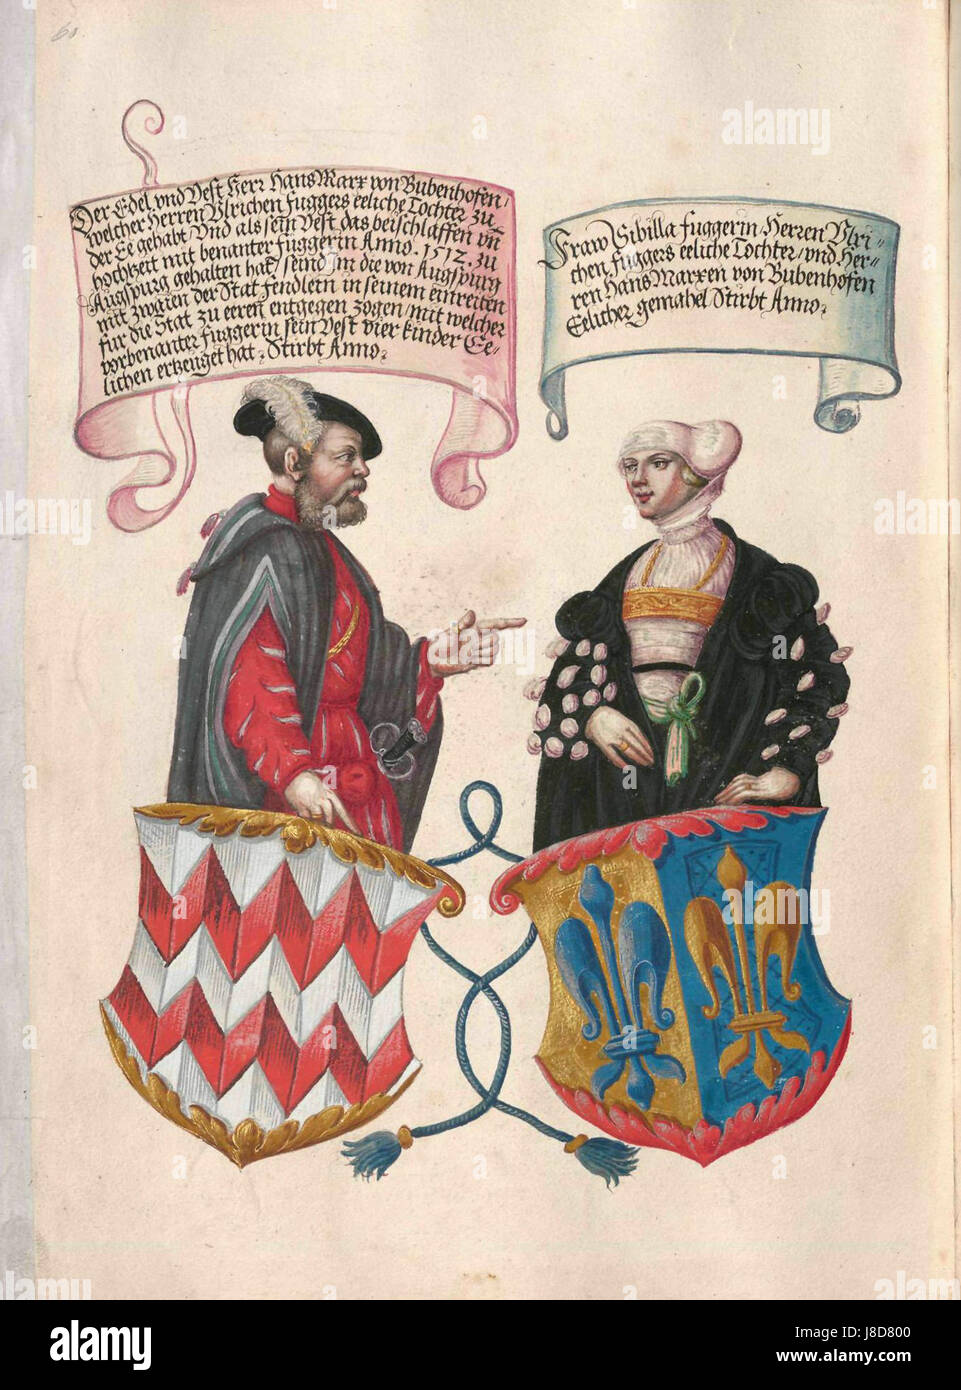 60.
Der Edel vnd Vest Herr Hans Marx von Bubenhofen,
welcher Herren Vlrichen Fuggers eeliche Tochter zu
der Ee gehabt Vnd als sein Vest das beischlaffen vn̄
hochzeit mit benanter Fuggerin Anno. 1512. zu
Augspurg gehalten hat / seind im die von Augspurg
mit zwayen der Stat fendlern in seinem einreiten
für die Stat zu eeren entgegen zogen / mit welcher
vorbenanter Fuggerin sein Vest vier kinder Ee-
lichen erzeuget hat. Stirbt Anno.
Fraw Sibilla Fuggerin, Herren Vlri-
chen Fuggers eeliche Tochter / vnd Her-
ren Hans Marxen von Bubenhofen
Eelicher gemahel Stirbt Anno.
alamy
alamy stock photo
J8D800
www.alamy.com